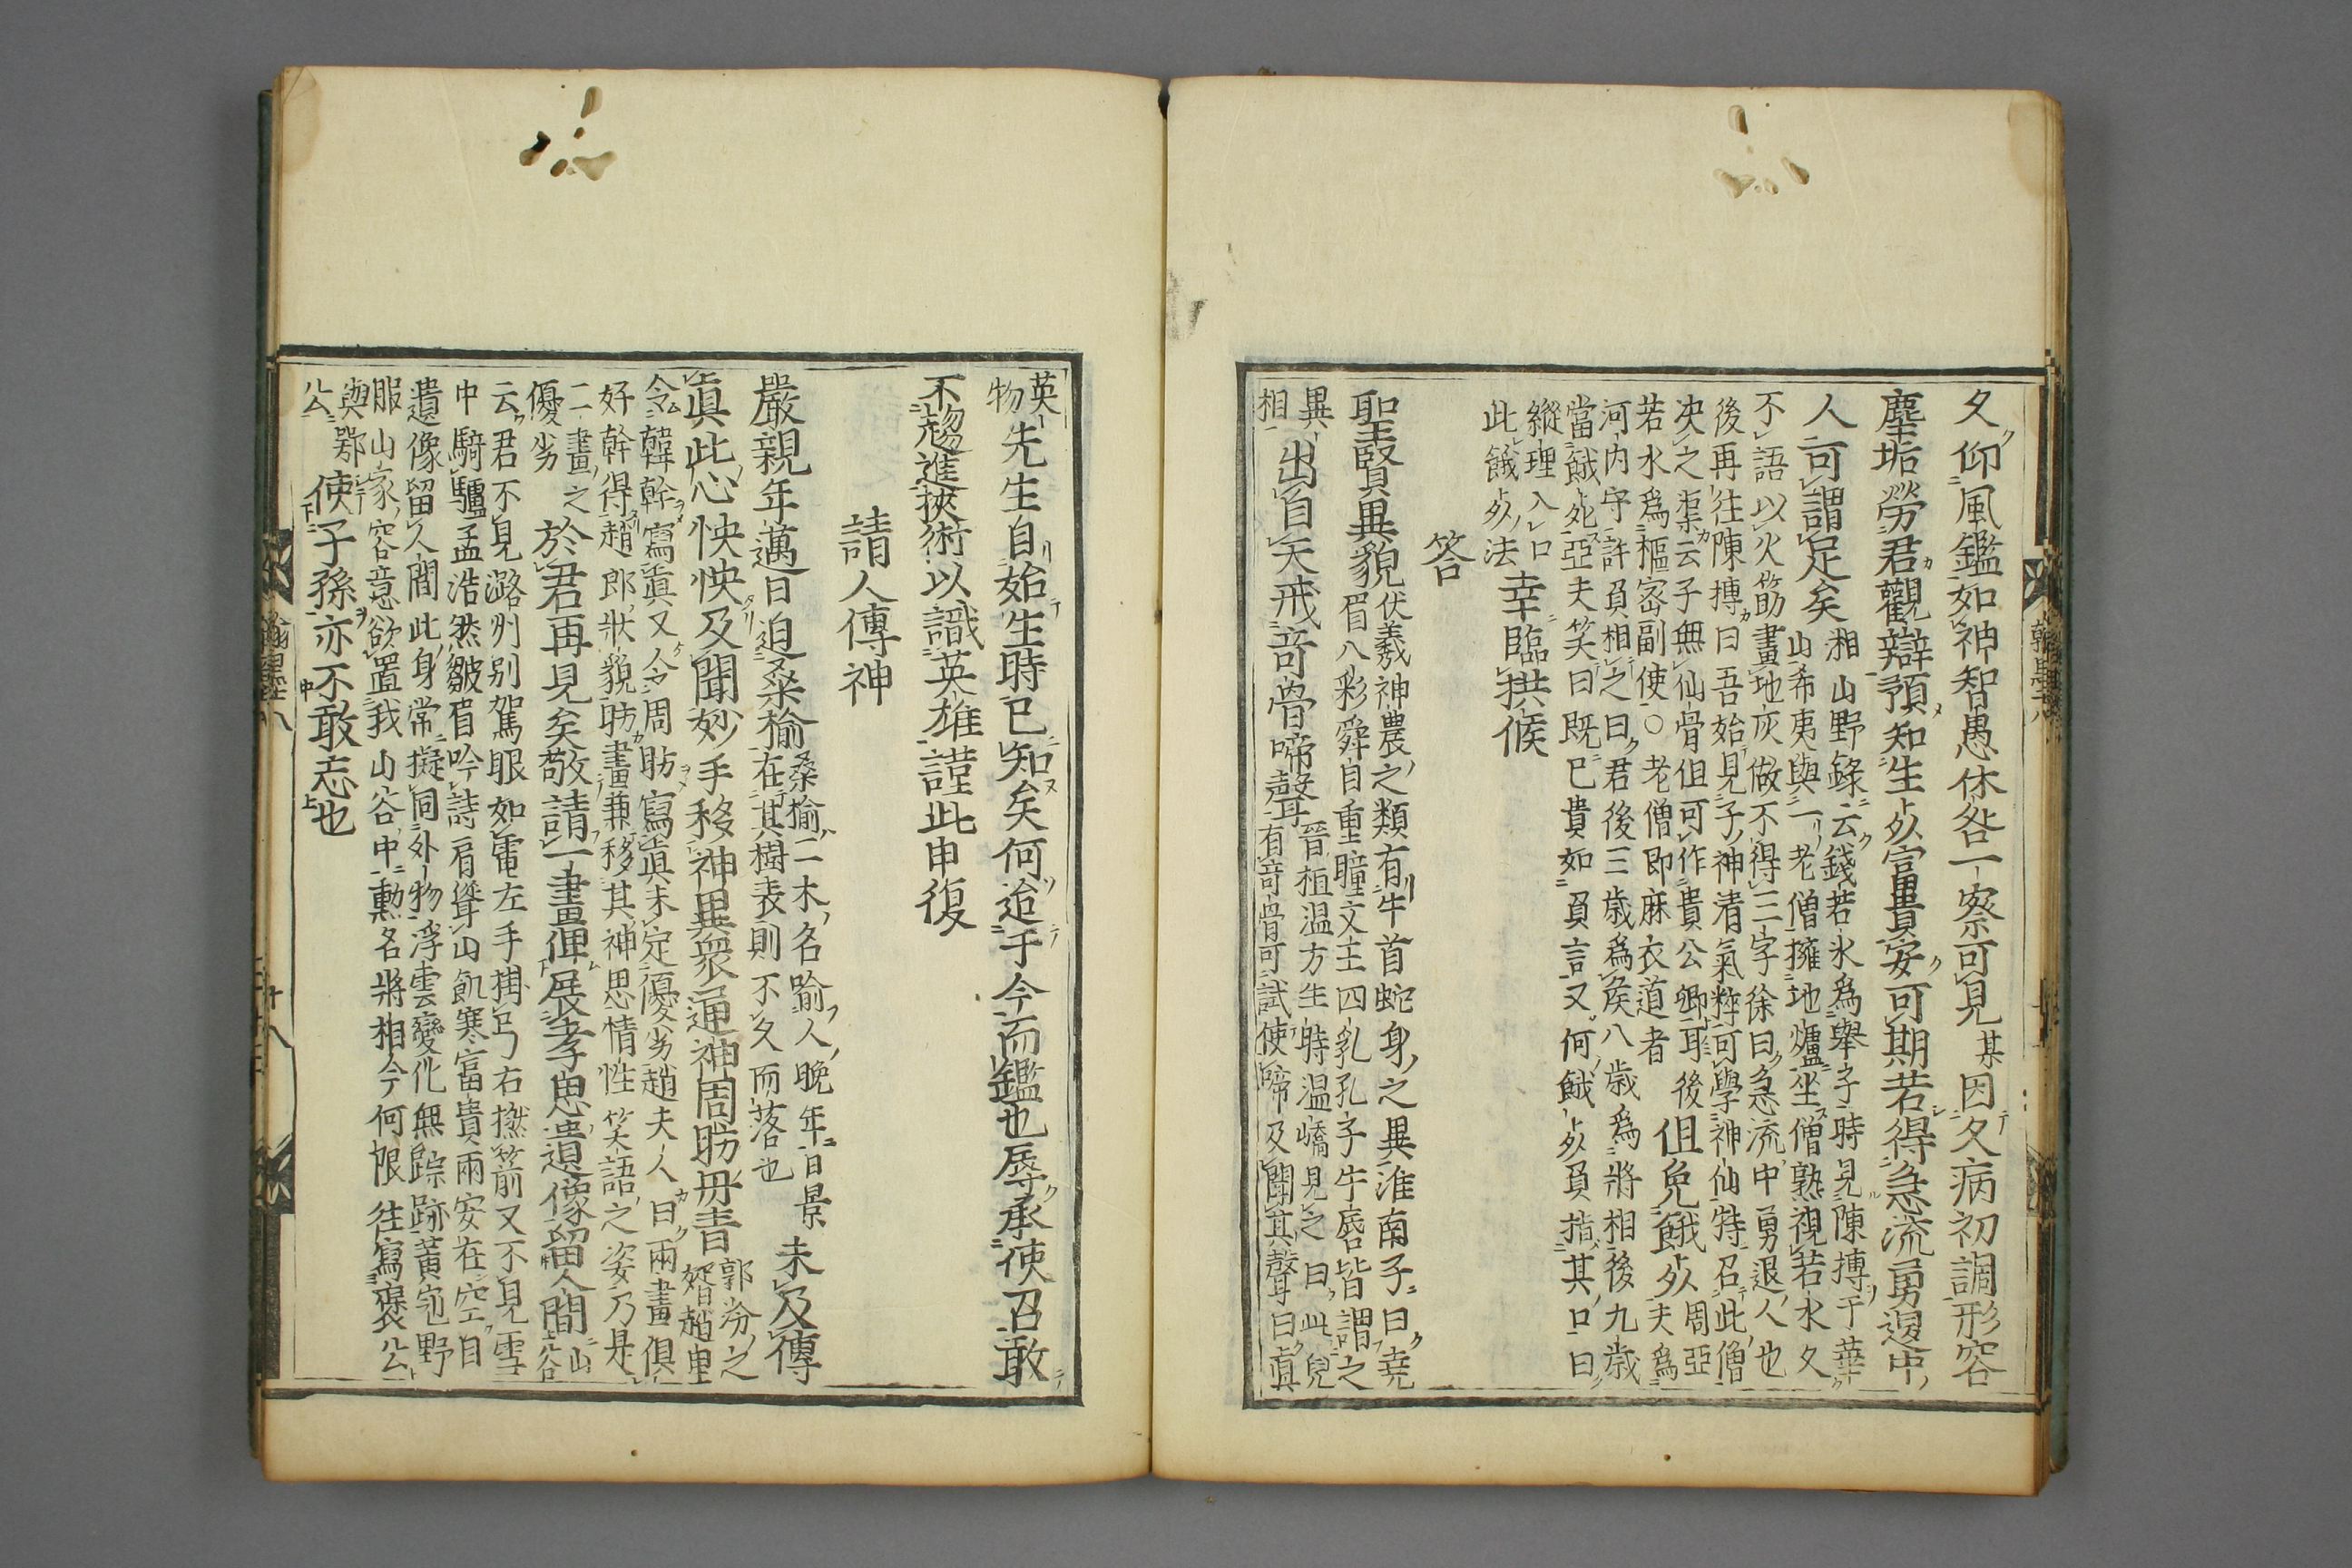 久仰風鑑如神智愚休咎一察可見某因久病初調形容
塵垢勞君觀辯預知生必富貴安可期若得急流勇退中
人可謂足矣
湘山野錄云錢若水為舉子時見陳摶于華
山希夷與一老僧擁地爐坐僧熟視若水久
不語以火筯畫地灰做不得三字徐曰急流中勇退人也
後再往陳摶曰吾始見子神清氣粹可學神仙特召此僧
决之渠云子無仙骨但可作貴公卿耳後
若水為樞密副使○老僧即麻衣道者
但免餓必
周亞
夫為
河内守許負相之曰君後三歲為侯八歲為將相後九歲
當餓死亞夫笑曰既已貴如負言又何餓必負指其口曰
縱理入口
此餓必法
幸臨拱候
答
聖賢異貌
伏羲神農之類有牛首蛇身之異淮南子曰堯
眉八彩舜自重瞳文王四乳孔子牛唇皆謂之
異
相
出自天戒奇骨啼聲
晉桓温方生時温嶠見之曰此兒
有奇骨可試使啼及聞其聲曰真
英
物
先生自始生時已知矣何迨于今而鑑也辱承使召敢
不趨進挾術以識英雄謹此申復
請人傳神
嚴親年邁日迫桑榆
桑榆二木名喻人晚年日景
在其樹表則不久而落也
未及傳
真此心怏怏及聞妙手移神異衆逼神周昉毋青
郭汾之
婿趙里
令韓幹寫真又令周昉寫真未定優劣趙夫人曰兩畫俱
好幹得趙郎狀貌昉畫兼移其神思情性笑語之姿乃是
二畫之
優劣
於君再見矣敬請一畫俾展孝思遺像留人間
山
谷
云君不見潞州别駕眼如電左手掛弓右撚箭又不見雪
中騎驢孟浩然皺眉吟詩肩聳山飢寒富貴兩安在空自
遺像留人間此身常擬同外物浮雲變化無踪跡黃冠野
服山家容意欲置我山谷中勲名將相今何限往寫褒公
與鄂
公
使子孫亦不敢忘也
翰墨十八
十八